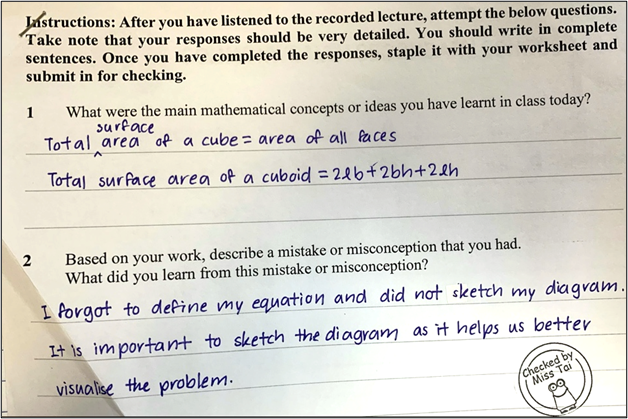 Instructions: After you have listened to the recorded lecture, attempt the below questions.
Take note that your responses should be very detailed. You should write in complete
sentences. Once you have completed the responses, staple it with your worksheet and
submit in for checking.
1 What were the main mathematical concepts or ideas you have learnt in class today?
Total surface area of a cube = area of all faces
Total surface area of a cuboid = 2lb + 2bh + 2lh
2 Based on your work, describe a mistake or misconception that you had.
What did you learn from this mistake or misconception?
I forgot to define my equation and did not sketch my diagram.
It is important to sketch the diagram as it helps us better
visualise the problem.
Checked by
Miss Tai